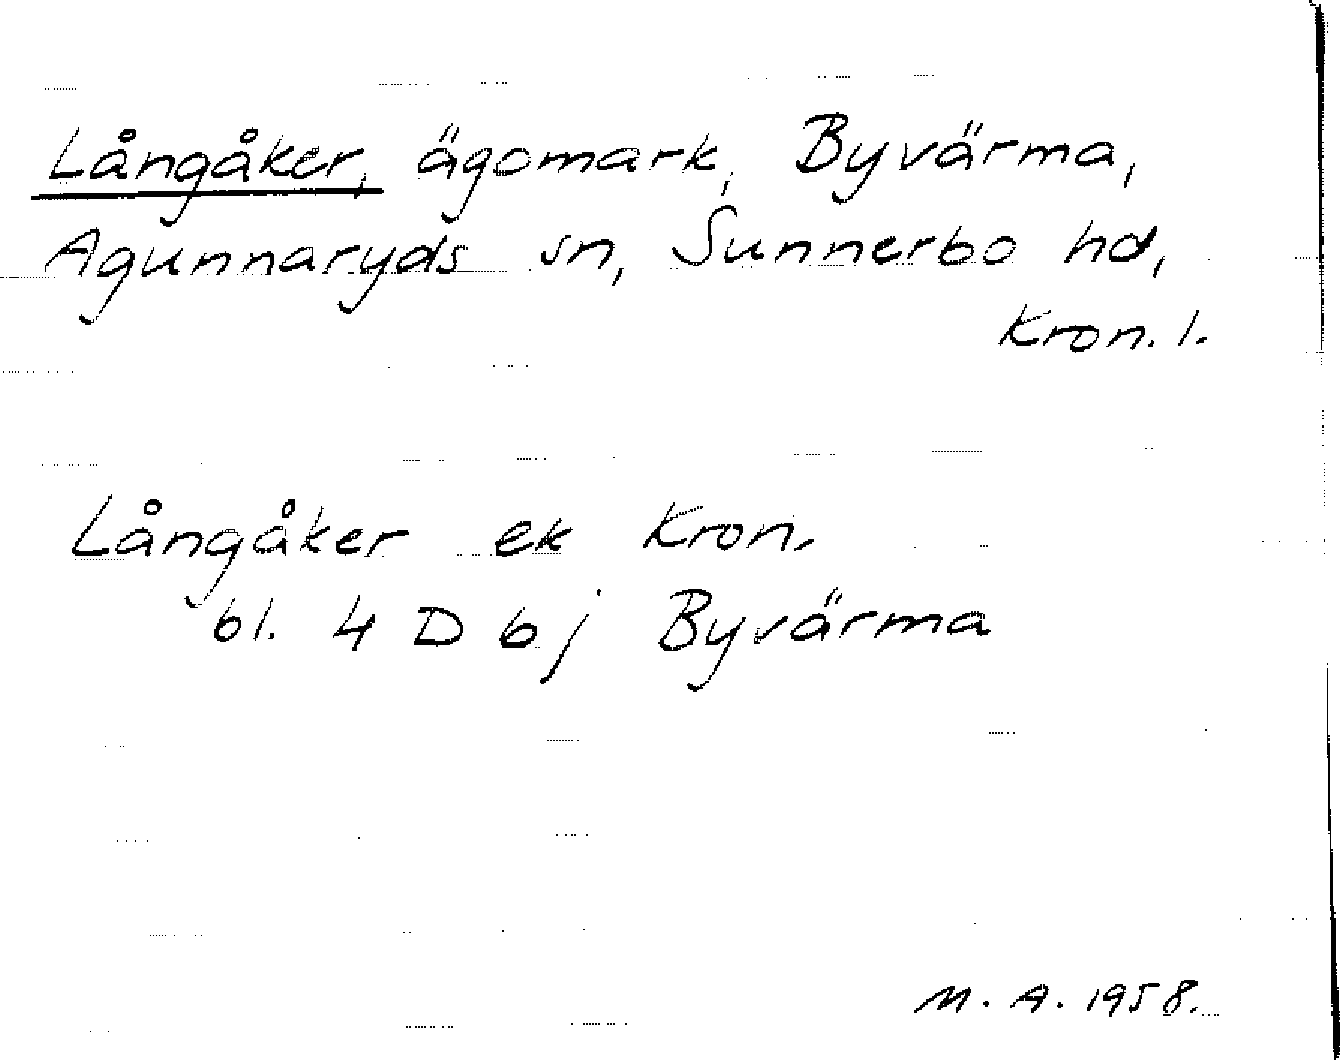 Långåker, ägomark, Byvärma,
Agunnaryds sn, Sunnerbo hd,
Kron. l.
Långåker ek Kron.
bl. 4 D b j Byvärma
M. A. 1958.